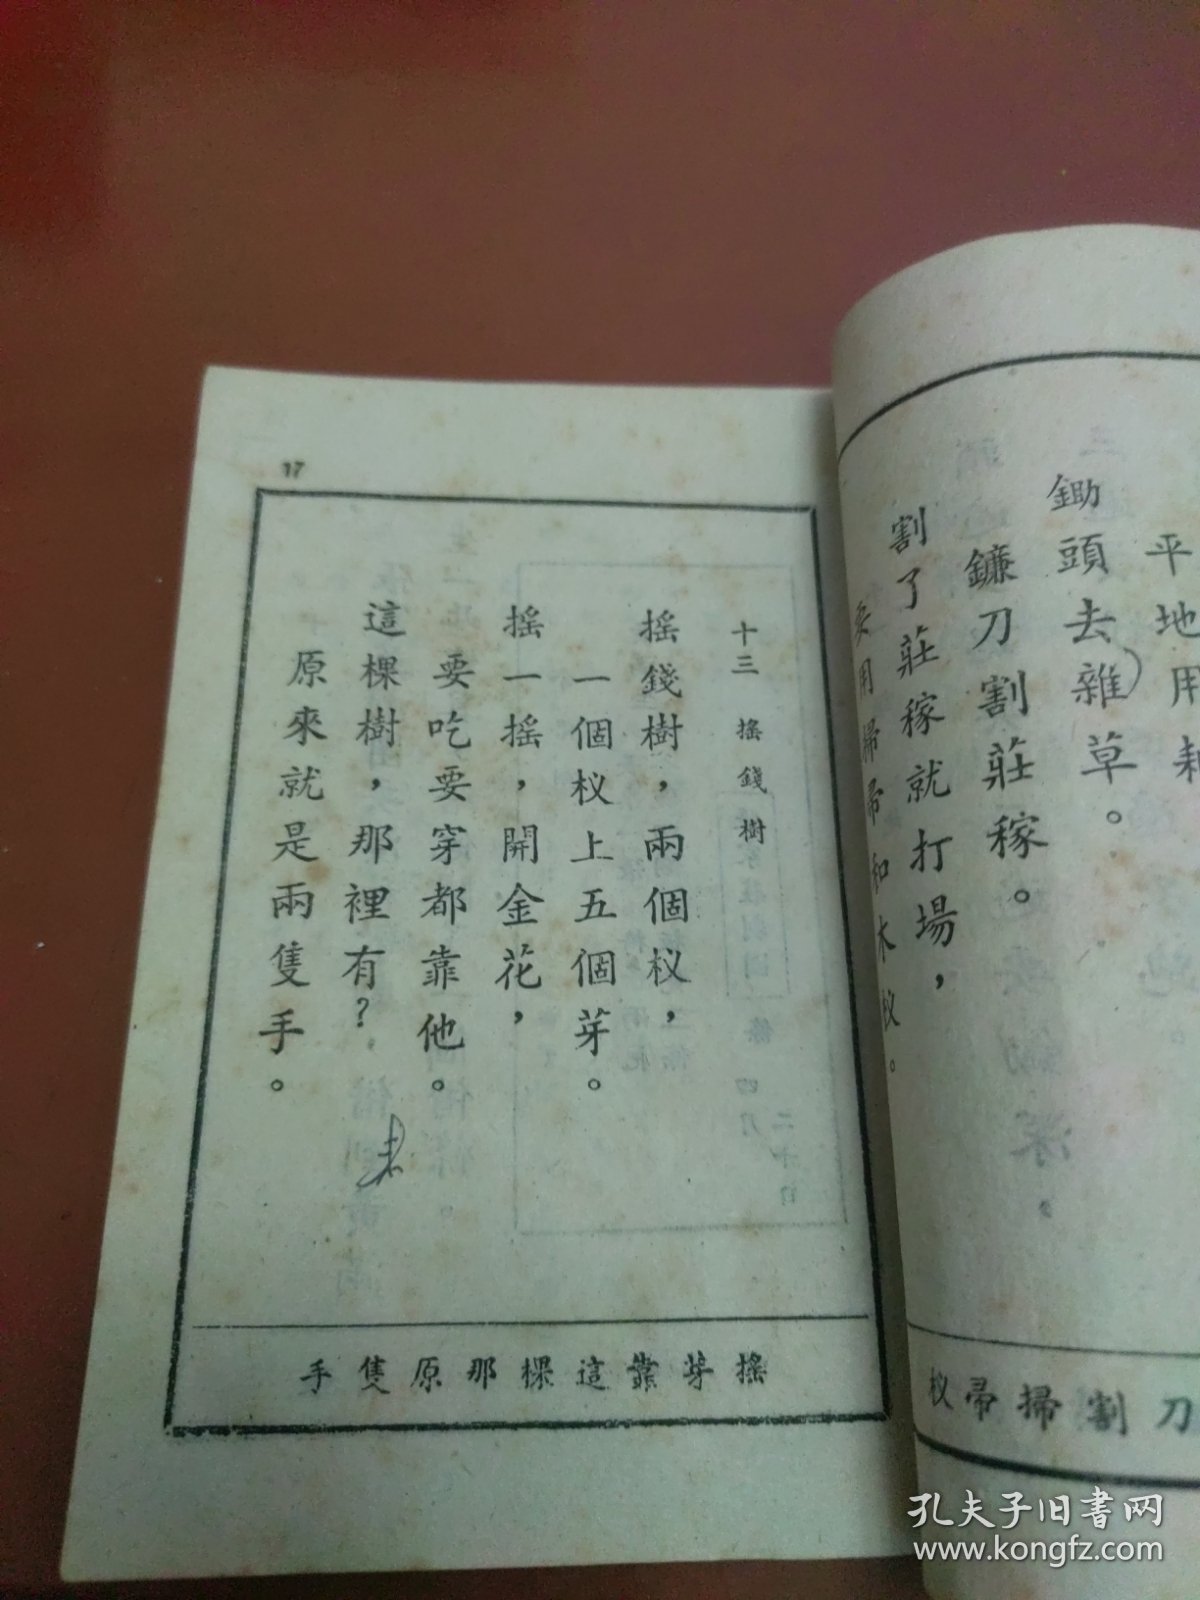 平地用耒
鋤頭去雜草。
鐮刀割莊稼。
割了莊稼就打場，
要用掃帚和木杈。
刀割掃帚杈
17
十三 搖錢樹
搖錢樹，兩個杈，
一個杈上五個芽。
搖一搖，開金花，
要吃要穿都靠他。
這棵樹，那裡有？
原來就是兩隻手。
搖芽靠這棵那原隻手
孔夫子旧书网
www.kongfz.com